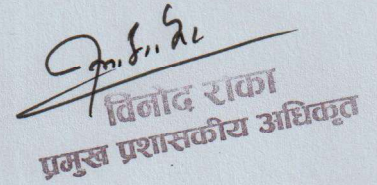 विनोद रांका
प्रमुख प्रशासकीय अधिकृत